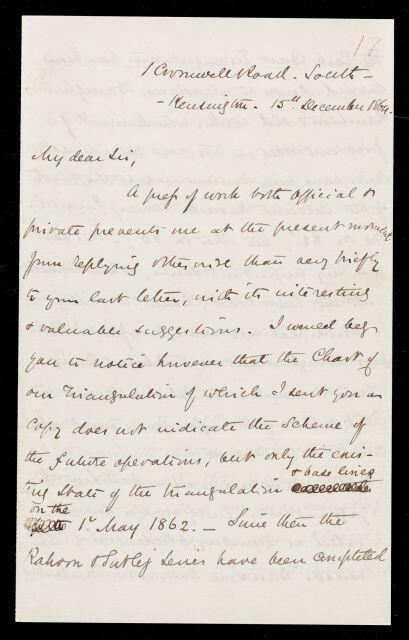 17
1 Cromwell Road. South-
- Kensington. 15th December 186
My dear Sir,
A press of work both official &
private prevents me at the present moment
from replying otherwise than very briefly
to your last letter, with its interesting
& valuable suggestions. I would beg
you to notice however that the Chart of
our Triangulation of which I sent you a
copy does not indicate the Scheme of
the future operations, but only the exis-
& base lines
ting state of the triangulation
on the
1st May 1862. - Since then the
Rahoon & Sutlej Series have been completed